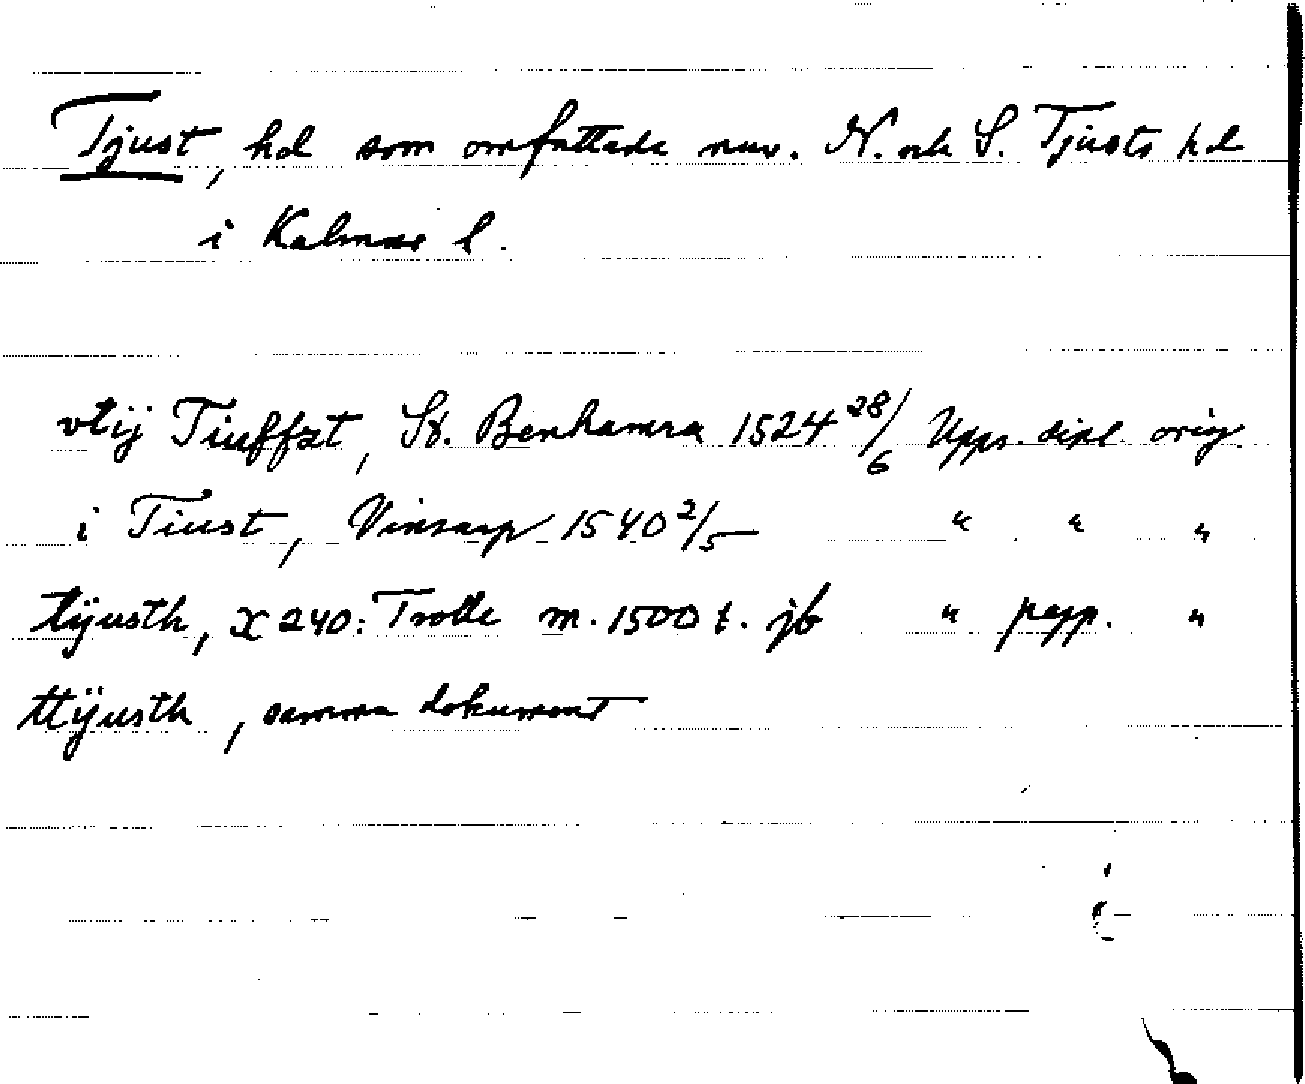 Tjust, hd som omfattade nuv. N. och S. Tjusts hd
i Kalmar l.
vtij Tiuffzt, St. Benhamra 1524 28/6 Upps. dipl. orig.
i Tiust, Vinsarp 1540 2/5 " " "
tÿusth, X 240: Trolle m. 1500 t. jb " papp. "
ttÿusth, samma dokument